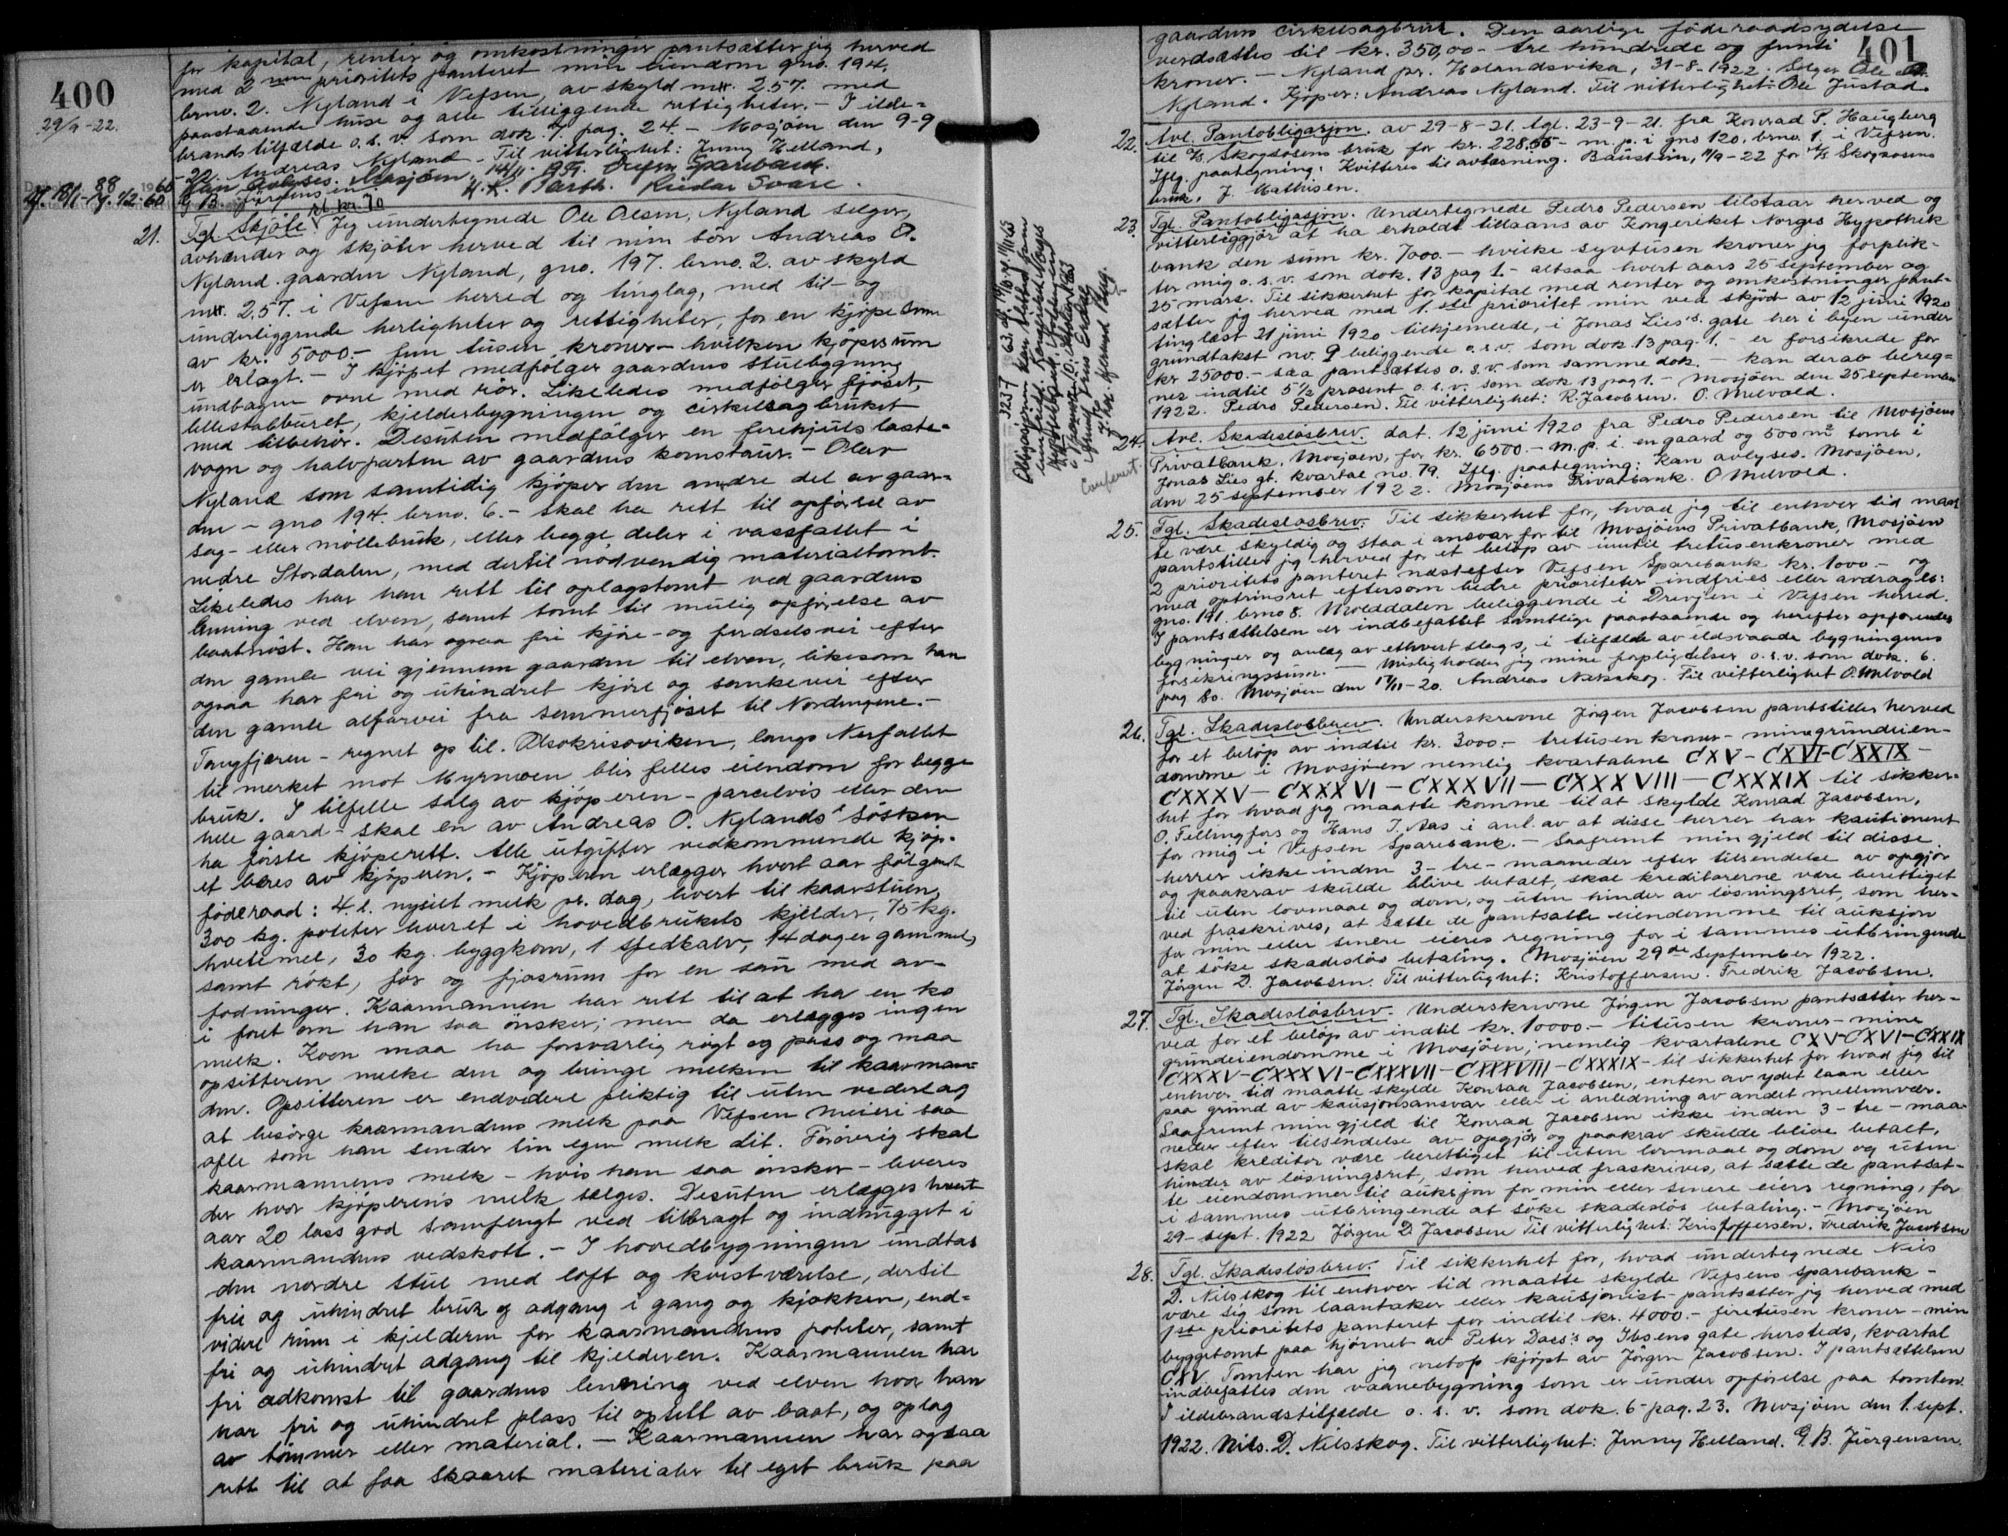 400
29/9-22.
for kapital, renter og omkostninger pantsætter jeg herved
med 2nen prioritets panteret min eiendom gno. 194,
brno. 2. Nyland i Vefsen, av skyld mk. 2.57. med
paastaaende huse og alle tilliggende rettigheter. - I ilde-
brandstilfælde o.s.v. som dok. 7. pag. 24. - Mosjöen den 9-9
-22. Andreas Nyland. Til vitterlighet: Jenny Helland,
G. B. Jürgensen.
Kan avlyses. Mosjøen,
H. K. Barth. Reidar Svare.
21. Tgl. Skjöte. Jeg undertegnede Ole Olsen, Nyland selger,
avhænder og skjöter herved til min sön Andreas O.
Nyland gaarden Nyland, gno. 197. brno. 2. av skyld
mk. 2,57. i Vefsen herred og tinglag, med til- og
underliggende herligheter og rettigheter, for en kjöpesum
av kr. 5000.- fem tusen kroner - hvilken kjöpesum
er erlagt. - I kjöpet medfölger gaardens stuebygning
undtagen ovne med rör. Likeledes medfölger fjöset,
lillestabburet, kjelderbygningen og cirkelsagbruket
med tilbehör. Desuten medfölger en firehjuls laste-
vogn og halvparten av gaardens kornstaur. - Olav
Nyland som samtidig kjöper den andre del av gaar-
den - gno 194. brno. 6. - skal ha rett til opförsel av
sag- eller möllebruk, eller begge deler i vassfallet i
nedre Stordalen, med dertil nödvendig materialtomt.
Likeledes har han rett til oplagstomt ved gaardens
lenning ved elven, samt tomt til mulig opförelse av
baatnöst. Han har ogsaa fri kjöre- og ferdselsvei efter
den gamle vei gjennem gaarden til elven, likesom han
ogsaa har fri og uhindret kjöre og sankevei efter
den gamle alfarvei fra sommerfjöset til Nordengene. -
Tangfjæren - regnet op til Olsokrisoviken, langs Nerfallet
til merket mot Myrnesen blir felles eiendom for begge
bruk. I tilfelle salg av kjöperen - parcelvis eller den
hele gaard - skal en av Andreas O. Nylands söskn
ha förste kjöperett. Alle utgifter vedkommende kjöp-
et bæres av kjöperen. - Kjöperen erlægger hvert aar fölgende
föderaad: 4. l. nysilt melk pr. dag, livert til kaarstuen,
300 kg. poteter leveret i hovedbrukets kjelder, 75 kg.
hvetemel, 30 kg. byggkorn, 1 spedkalv, 14 dager gammel,
samt rökt, for og fjösrum for en sau med av-
fodninger. Kaarmannen har rett til at ha en ko
i foret om han saa önsker; men da erlægges ingen
melk. Koen maa ha forsvarlig rögt og pass og maa
opsitteren melke den og bringe melken til kaarman-
den. Opsitteren er endvidere pliktig til uten vederlag
at besörge kaarmandens melk paa Vefsen meieri saa
ofte som han sender sin egen melk dit. Foröverig skal
kaarmannens melk - hvis han saa önsker - leveres
der hvor kjöperens melk selges. Desuten erlægges hvert
aar 20 lass god samfengt ved tilbragt og indhugget i
kaarmandens vedskott. - I hovedbygningen undtas
den nordre stue med loft og kvistværelse, dertil
fri og uhindret bruk og adgang i gang og kjökken, end-
videre rum i kjelderen for kaarmandens poteter, samt
fri og uhindret adgang til kjelderen. Kaarmannen har
fri adkomst til gaardens lenning ved elven hvor han
har fri og uhindret plass til opsett av baat, og oplag
av tömmer eller material. - Kaarmannen har ogsaa
rett til at faa skaaret materialer til eget bruk paa
401
gaardens cirkelsagbruk. Den aarlige föderaadsydelse
verdsættes til kr. 350,00 - tre hundrede og femti
kroner. - Nyland pr. Holandsvika, 31-8-1922. Selger Ole O.
Nyland. Kjöper: Andreas Nyland. Til vitterlighet: Ole Justad.
22. Avl. Pantobligasjon. av 29-8-21. tgl. 23-9-21. fra Konrad P. Haugberg
til A/S Skogsosens bruk for kr. 228.55 - m.p. i gno 120. brno. 1. i Vefsen.
Iflg. paategning: Kvitteres til avlæsning. Baustein, 11/9-22 for A/S Skogsosens
bruk, J. Mathisen.
23. Tgl. Pantobligasjon. Undertegnede Pedro Pedersen tilstaar herved og
vitterliggjör at ha erholdt tillaans av Kongeriket Norges Hypothek
bank den sum kr. 7000. - hvilke syvtusen kroner jeg forplik-
ter mig o.s.v. som dok. 13 pag 1. - altsaa hvert aars 25 september og
25 mars. Til sikkerhet for kapital med renter og omkostninger pant-
sætter jeg herved med 1.ste prioritet min ved skjöte av 12 juni 1920
tinglæst 21 juni 1920 tilhjemlede, i Jonas Lies's gate her i byen under
grundtakst no. 9 beliggende o.s.v. som dok 13 pag. 1. - er forsikrede for
kr 25000. - saa pantsættes o.s.v. som samme dok. - kan derav bereg-
nes indtil 5 1/2 prosent o.s.v. som dok 13 pag 1. - Mosjöen den 25 september
1922. Pedro Pedersen. Til vitterlighet: R. Jacobsen. O. Melvold.
24. Avl. Skadeslösbrev. dat. 12 juni 1920 fra Pedro Pedersen til Mosjöens
Privatbank, Mosjöen, for kr. 6500 - m.p. i en gaard og 500 m² tomt i
Jonas Lies gt. kvartal no. 79. Iflg. paategning: Kan avlyses. Mosjöen,
den 25 september 1922. Mosjöens Privatbank. O Melvold.
25. Tgl. Skadeslösbrev. Til sikkerhet for, hvad jeg til enhver tid maat
te være skyldig og staa i ansvar for til Mosjöens Privatbank, Mosjöen
pantstiller jeg herved for et belöp av inntil tretusenkroner med
2 prioritets panteret næstefter Vefsen Sparebank kr. 1000 - og
med optrinsret eftersom bedre prioriteter indfries eller avdrages:
gno. 191. brno 8. Molddalen beliggende i Drevjen i Vefsen herred.
I pantsættelsen er indbefattet samtlige paastaaende og herefter opförendes
bygninger og anlæg av ethvert slags, i tilfælde av ildsvaade bygningernes
forsikringssum. - Misligholder jeg mine forpligtelser o.s.v. som dok. 6.
pag 80. Mosjöen den 17/11-20. Andreas Nilsskog. Til vitterlighet O. Melvold
26. Tgl. Skadeslösbrev. Underskrevne Jörgen Jacobsen pantstiller herved
for et belöp av indtil kr. 3000. - tretusen kroner - mine grundeien-
domme i Mosjöen nemlig kvartalene CXV - CXVI - CXXIX -
CXXXV - CXXXVI - CXXXVII - CXXXVIII - CXXXIX til sikker-
het for hvad jeg maatte komme til at skylde Konrad Jacobsen,
O. Fellingfors og Hans J. Aas i anl. av at disse herrer har kautionert
for mig i Vefsen Sparebank. - Saafremt min gjeld til disse
herrer ikke inden 3 - tre - maaneder efter tilsendelse av opgjör
og paakrav skulde blive betalt, skal kreditorerne være berettiget
til uten lovmaal og dom, og uten hinder av lösningsret, som her-
ved fraskrives, at sætte de pantsatte eiendomme til auksjon
for min eller senere eieres regning for i sammes utbringende
at söke skadeslös betaling. Mosjöen 29de September 1922.
Jörgen D. Jacobsen. Til vitterlighet: Kristoffersen. Fredrik Jacobsen.
27. Tgl. Skadeslösbrev. Underskrevne Jörgen Jacobsen pantsætter her-
ved for et belöp av indtil kr. 10000. - titusen kroner - mine
grundeiendomme i Mosjöen, nemlig kvartalene CXV-CXVI-CXXIX
CXXXV-CXXXVI-CXXXVII-CXXXVIII-CXXXIX- til sikkerhet for hvad jeg til
enhver tid maatte skylde Konraa Jacobsen, enten av ydet laan eller
paa grund av kausjonsansvar eller i anledning av andet mellemvær.
Saafremt min gjeld til Konrad Jacobsen ikke inden 3 - tre - maa-
neder efter tilsendelse av opgjör og paakrav skulde blive betalt,
skal kreditor være berettiget til uten lovmaal og dom og uten
hinder av lösningsret, som herved fraskrives, at sætte de pantsat-
te eiendommer til auksjon for min eller senere eiers regning, for
i sammes utbringende at söke skadeslös betaling. - Mosjöen
29 - sept. 1922 Jörgen D Jacobsen Til vitterlighet: Kristoffersen. Fredrik Jacobsen
28. Tgl. Skadeslösbrev. Til sikkerhet for, hvad undertegnede Nils
D. Nilsskog til enhver tid maatte skylde Vefsens sparebank -
være sig som laantaker eller kausjonist - pantsetter jeg herved med
1ste prioritets panteret for indtil kr. 4000. - firetusen kroner - min
byggetomt paa hjörnet av Peter Dass's og Ibsens gate hersteds, kvartal
CXV. Tomten har jeg netop kjöpt av Jörgen Jacobsen. I pantsættelsen
indbefattes den vaanebygning som er under opförelse paa tomten.
I ildebrandstilfælde o.s.v. som dok. 6 pag. 23. Mosjöen den 1. sept.
1922. Nils. D. Nilsskog. Til vitterlighet: Jenny Helland. G.B. Jürgensen.